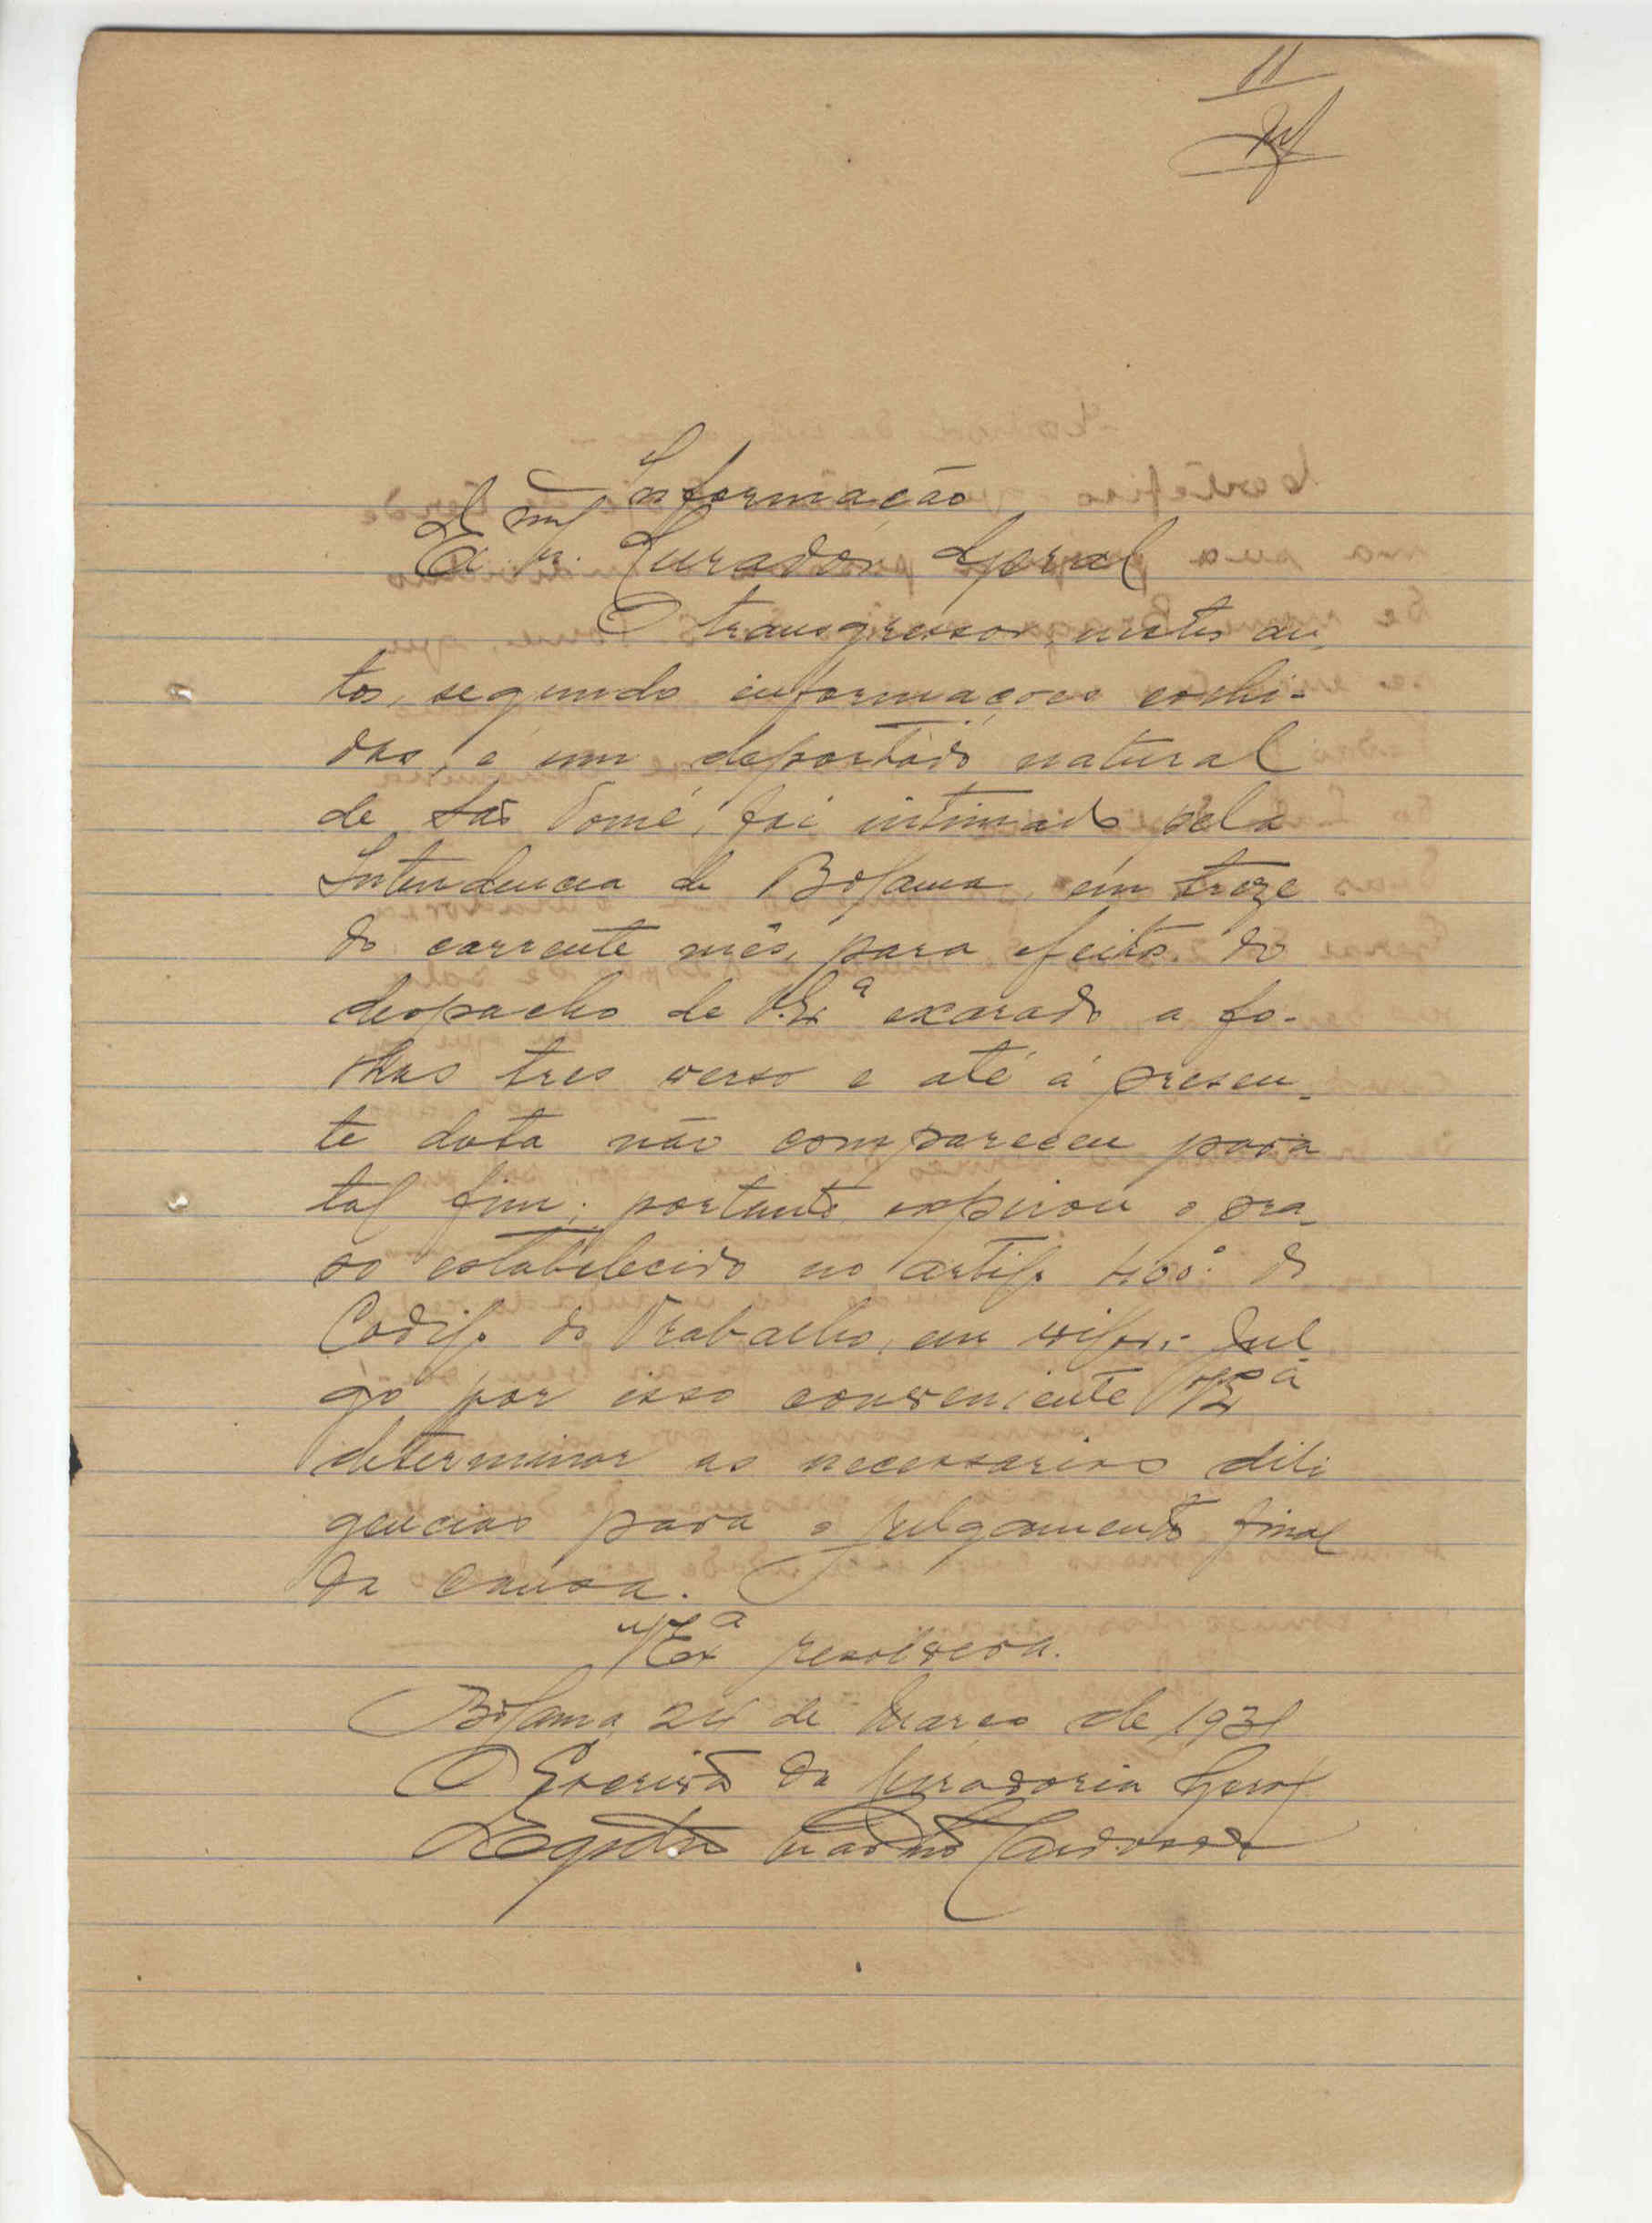 11
Informação
Exmº Sr. Curador Geral
O transgressor, nestes au-
tos, segundo informações colhi-
das, é um deportado natural
de São Tomé, foi intimado pela
Intendencia de Bolama, em treze
do corrente mês, para efeitos do
despacho de V. Exª exarado a fo-
lhas tres verso e até á presen-
te data não compareceu para
tal fim; portanto expirou o pra-
so estabelecido no artigo do
Codigo do Trabalho, em vigor; Jul-
go por isso conveniente V. Exª
determinar as necessarias dili
gencias para o julgamento final
da causa.
V. Exª resolverá.
Bolama, 24 de Março de 1931
O Escrivão da Curadoria Geral
Cardoso